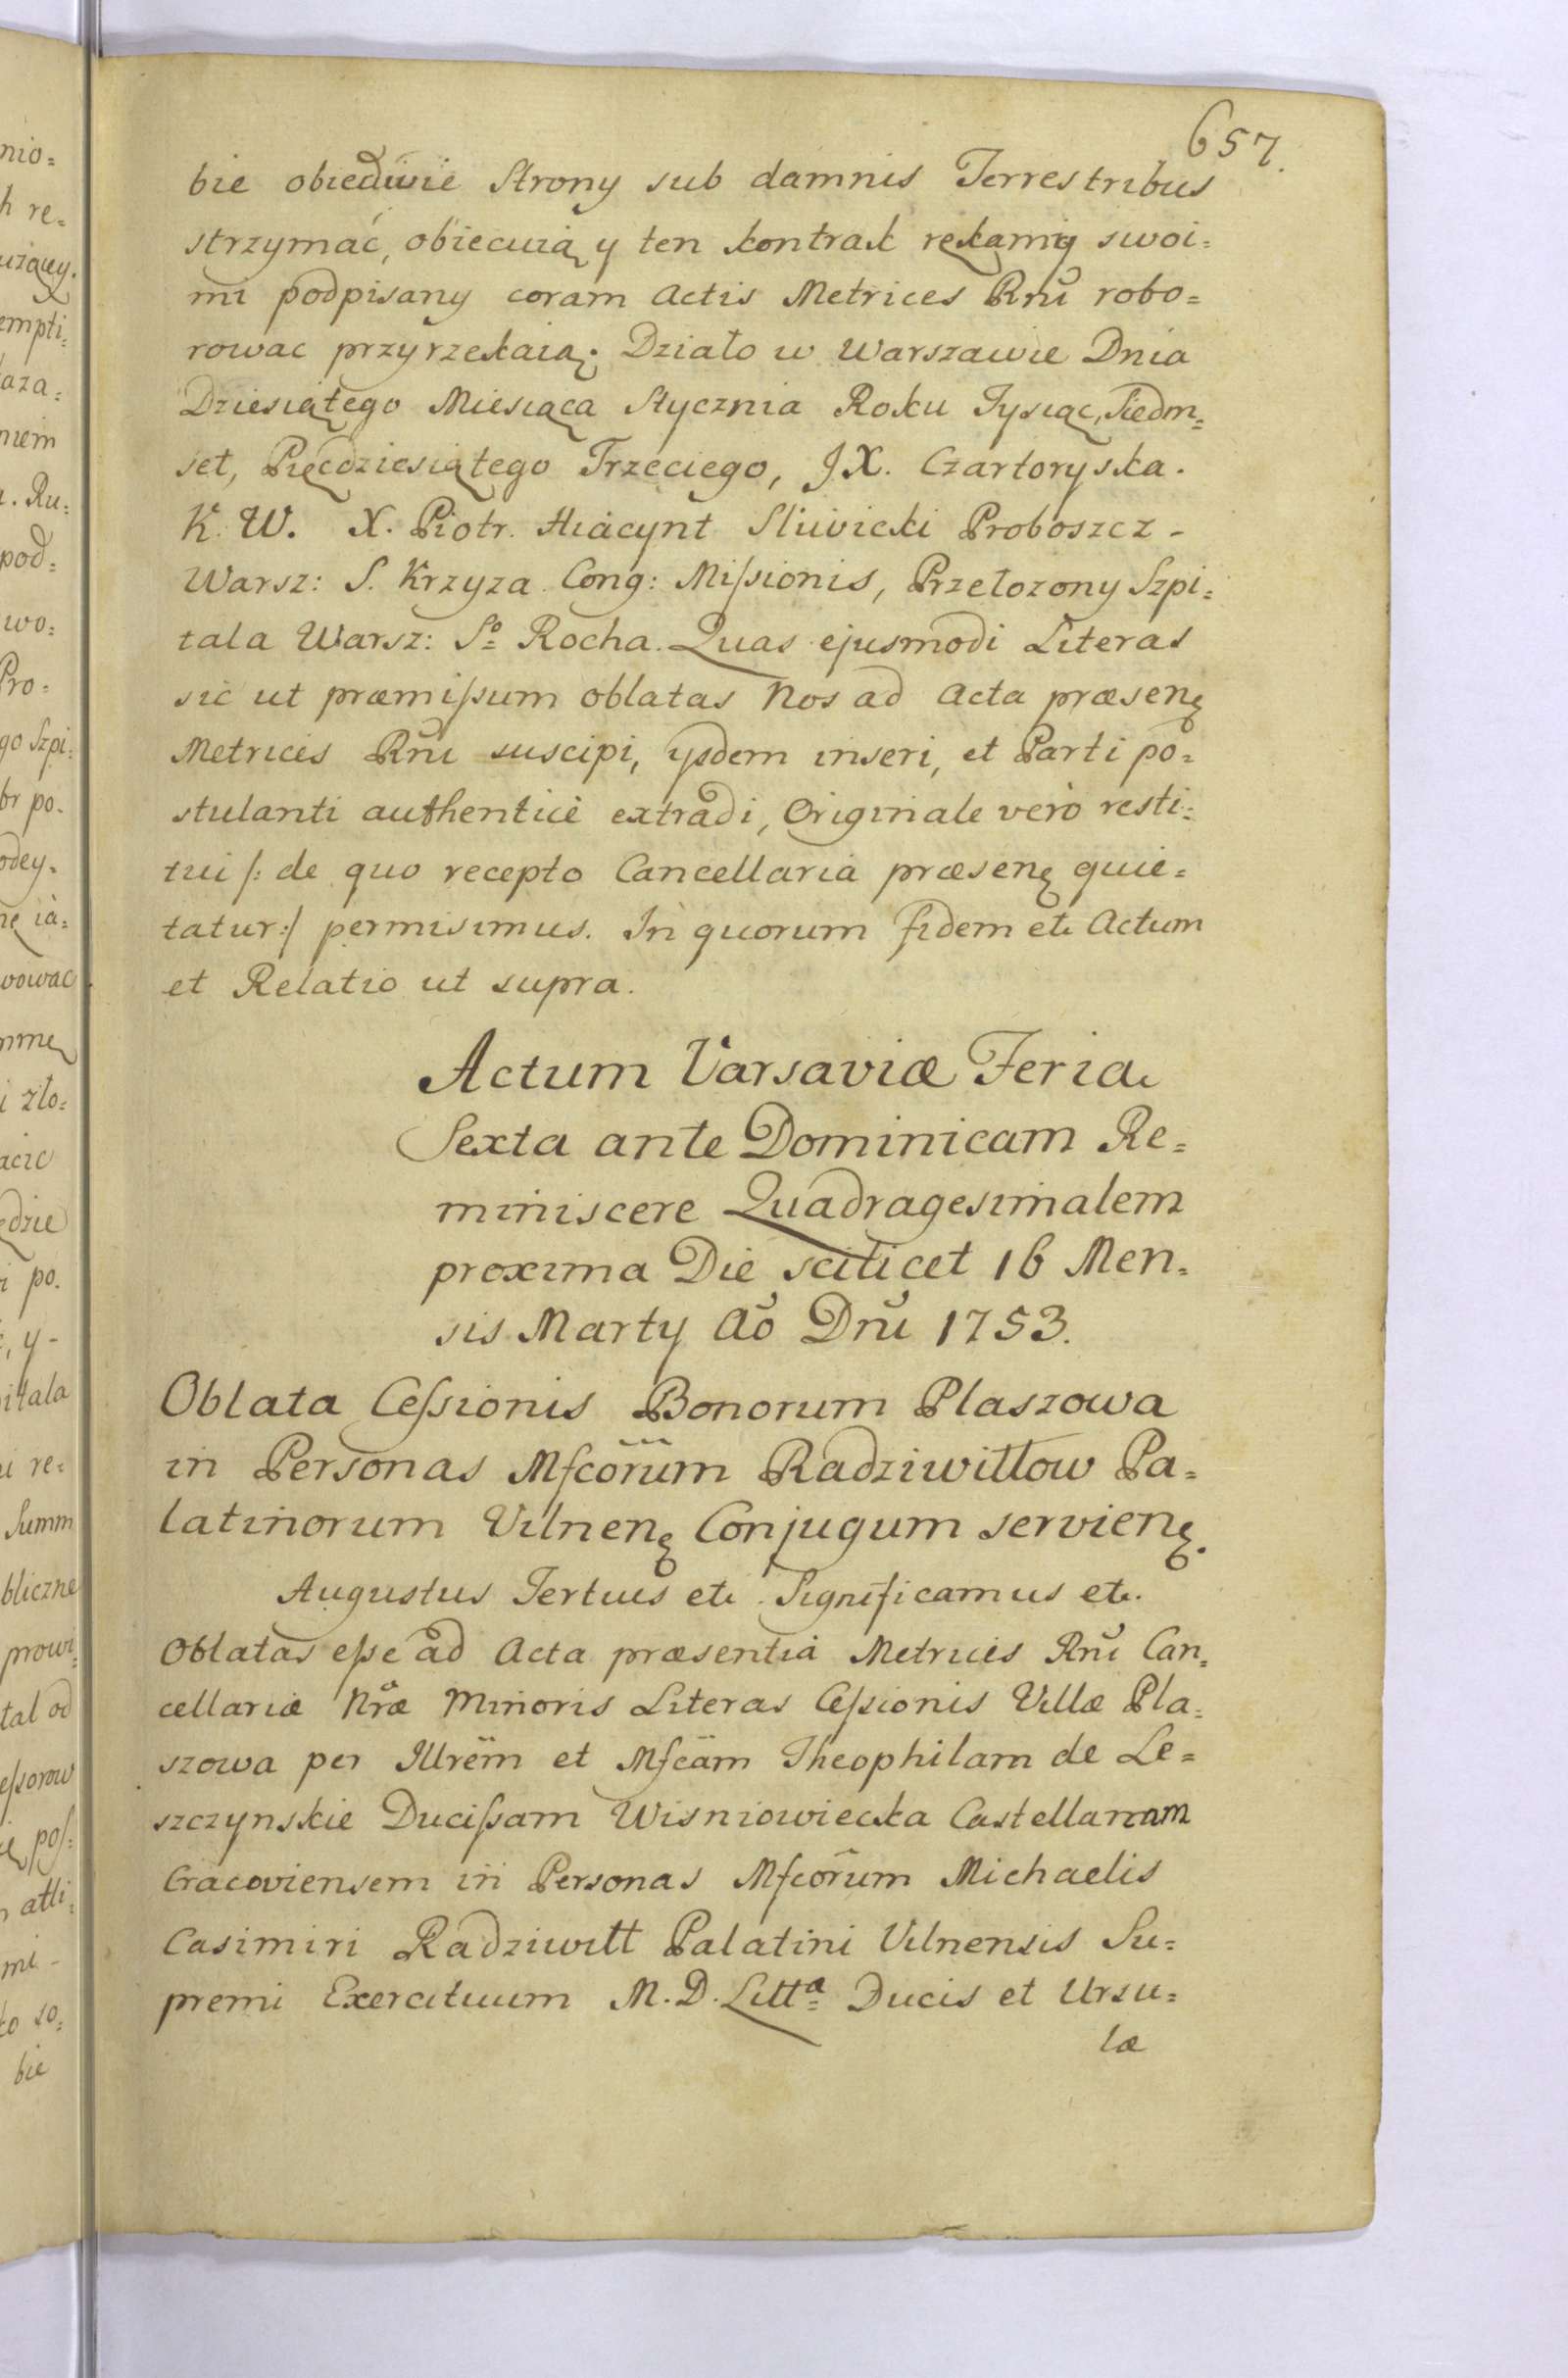 657.
bie obiedwie Strony sub damnis Terrestribus
strzymać, obiecuią y ten kontrakt rękamy swoi=
mi podpisany coram Actis Metrices Rnĭ robo=
rowac przyrzekaią. Działo w Warszawie Dnia
Dziesiątego Miesiąca Stycznia Roku Tysiąc, Siedm=
set, Pięcdziesiątego Trzeciego, J X. Czartoryska.
K. W. X. Piotr. Hiacynt Sliwicki Proboszcz -
Warsz: S. Krzyza Cong: Miſsionis, Przełozony Szpi=
tala Warsz: Sº Rocha. Quas ejusmodi Literas
sic ut præmiſsum oblatas Nos ad Acta præsenę
Metrices Rnĭ suscipi, ysdem inseri, et Parti po=
stulanti authenticè extradi, Originale verò resti=
tui /: de quo recepto Cancellaria præsenę quie=
tatur :/ permisimus. In quorum fidem etc Actum
et Relatio ut supra.
Actum Varsaviæ Feria
Sexta ante Dominicam Re=
miniscere Quadragesimalem
proxima Die scilicet 16 Men=
sis Marty Aŏ Dnĭ 1753.
Oblata Ceſsionis Bonorum Plaszowa
in Personas Mfcorum Radziwiłłow Pa=
latinorum Vilnenę Conjugum servienę.
Augustus Tertius etc Significamus etc.
Oblatas eſse ad Acta præsentia Metrices Rnĭ Can=
cellariæ Nræ Minoris Literas Ceſsionis Villæ Pla=
szowa per Illrem et Mfcam Theophilam de Le=
szczynskie Duciſsam Wisniowiecka Castellanam
Cracoviensem in Personas Mfcorum Michaelis
Casimiri Radziwiłł Palatini Vilnensis Su=
premi Exercituum M. D. Littª Ducis et Ursu=
læ